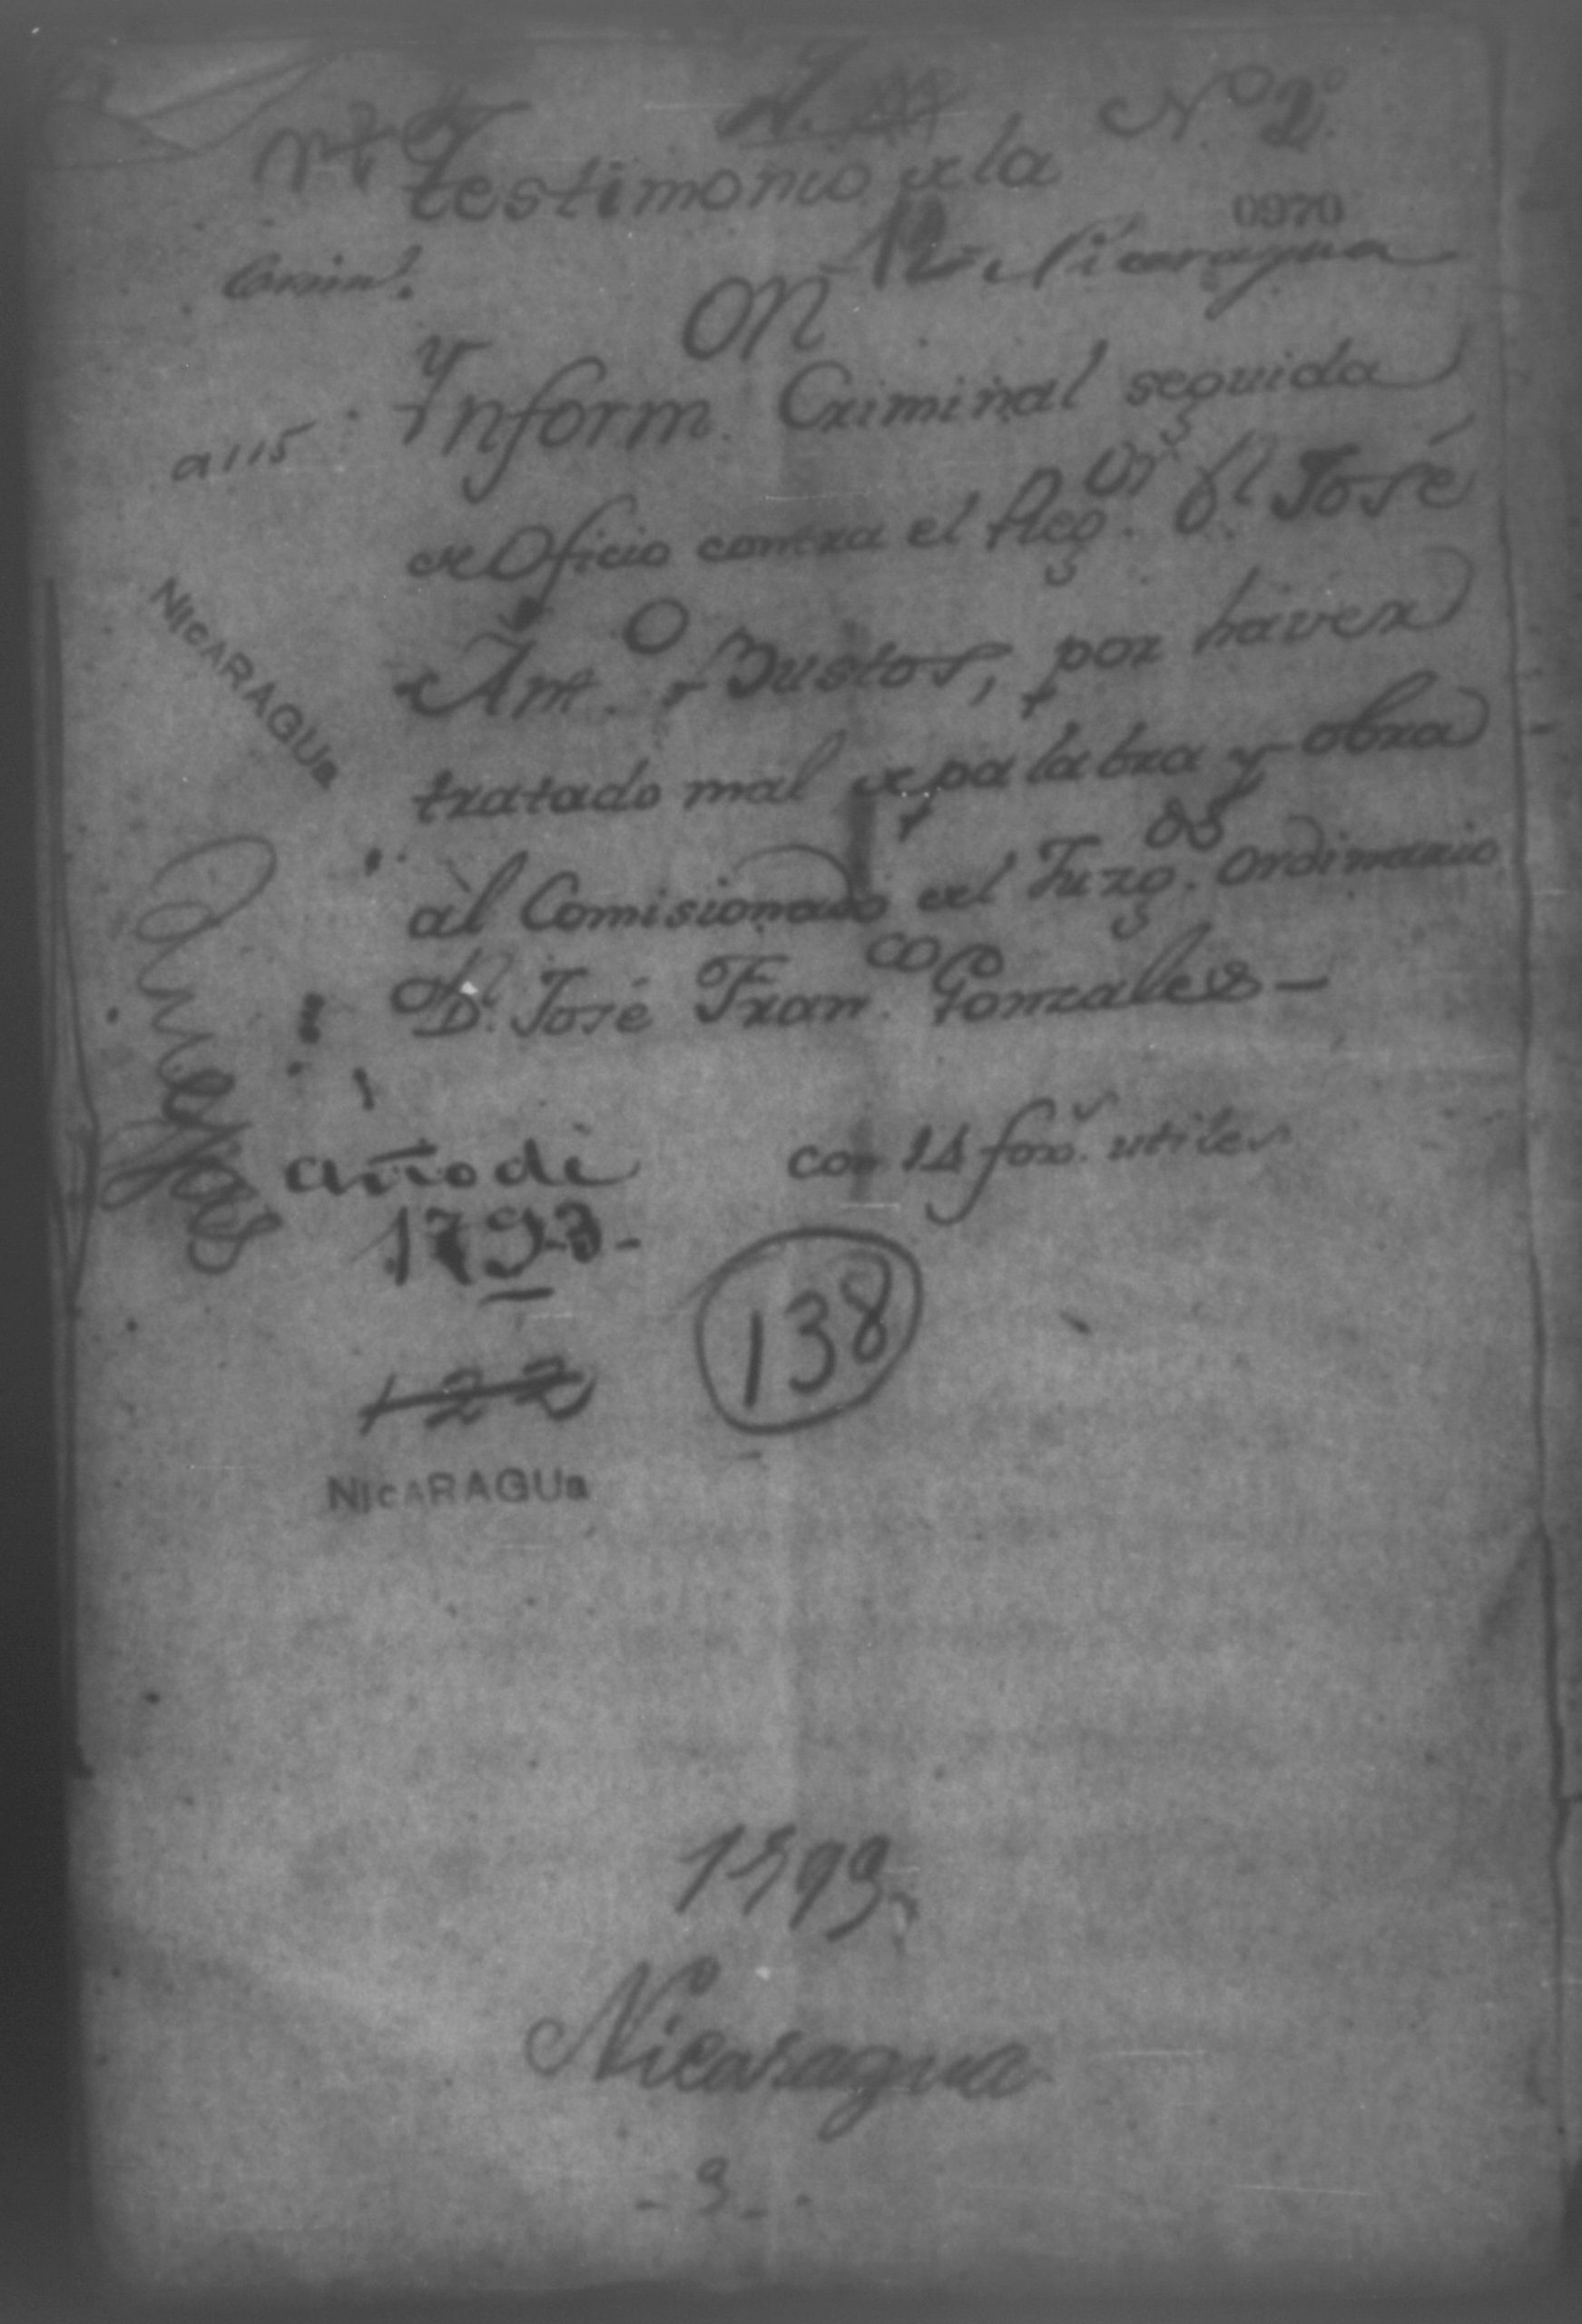 Nº 2º
testimonio de la
0970
12 Nicaragua
Crimin.l
Ynform.on Criminal seguida
a 115
de Oficio contra el Reg.or D.n José
Ant.o Bustos, por haver
NIcARAGUa
tratado mal de palabra y obra
al Comisionado del Juzg.do ordinario
D.n José Fran.co Gonzales –
Anejas
año de
1793–
con 14 fox.s utiles
138
122
NIcARAGUa
1793
Nicaragua
– 3 –